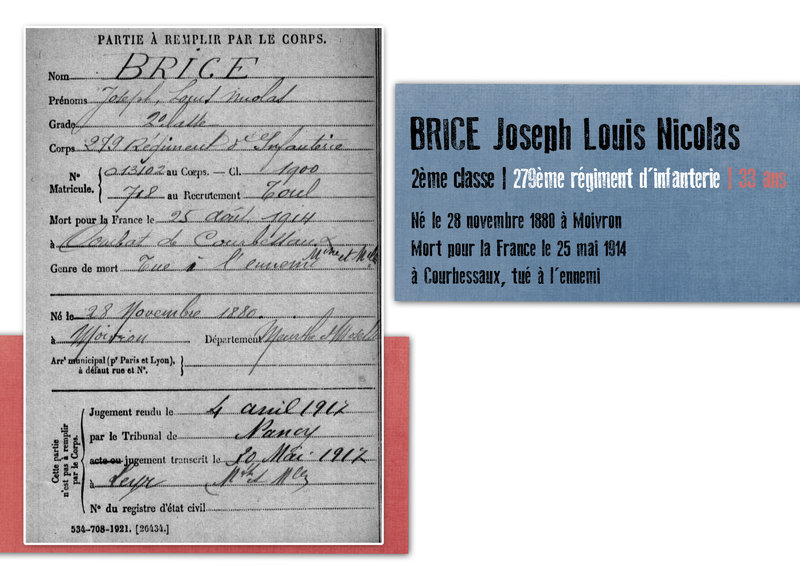 PARTIE À REMPLIR PAR LE CORPS.
Nom BRICE
Prénoms Joseph, Louis Nicolas
Grade 2e classe
Corps 279 Régiment d'Infanterie
N° Matricule. { 013102 au Corps. — Cl. 1900
708 au Recrutement Toul
Mort pour la France le 25 août 1914
à Combat de Courbessaux
Meurthe et Mlle
Genre de mort Tué à l'ennemi
Né le 28 Novembre 1880.
à Moivron Département Meurthe & Moselle
Arrt municipal (pr Paris et Lyon), à défaut rue et N°. }
Cette partie n'est pas à remplir par le Corps.
Jugement rendu le 4 avril 1917
par le Tribunal de Nancy
acte ou jugement transcrit le 20 Mai 1917
à Leyr Mthe et Mlle
N° du registre d'état civil
534-708-1921. [26434.]
BRICE Joseph Louis Nicolas
2ème classe | 279ème régiment d'infanterie | 33 ans
Né le 28 novembre 1880 à Moivron
Mort pour la France le 25 mai 1914
à Courbessaux, tué à l'ennemi